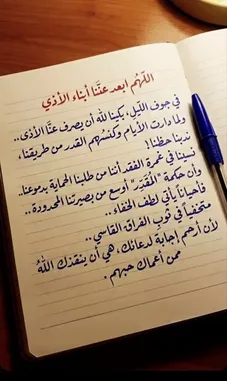 اللهم ابعد عنَّا أبناء الأذي
في جوف الليل، بكينا لله أن يصرف عنَّا الأذى..
ولما دارت الأيام وكنسهم القدر من طريقنا،
ندبنا حظنا!
نسينا في غمرة الفقد أننا من طلبنا الحماية بدموعنا..
وأن حكمة "المُقَدِّر" أوسع من بصيرتنا المحدودة..
فأحياناً يأتي لطف الخفاء..
متخفياً في ثوب الفراق القاسي..
لأن أرحم إجابة لدعائك، هي أن ينقذك اللهُ
ممن أعماك حبهم.